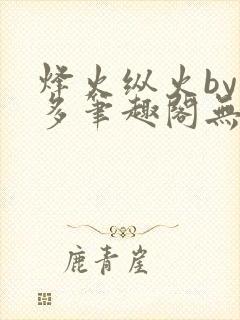 烽火纵火by
多笔趣阁無
鹿青崖